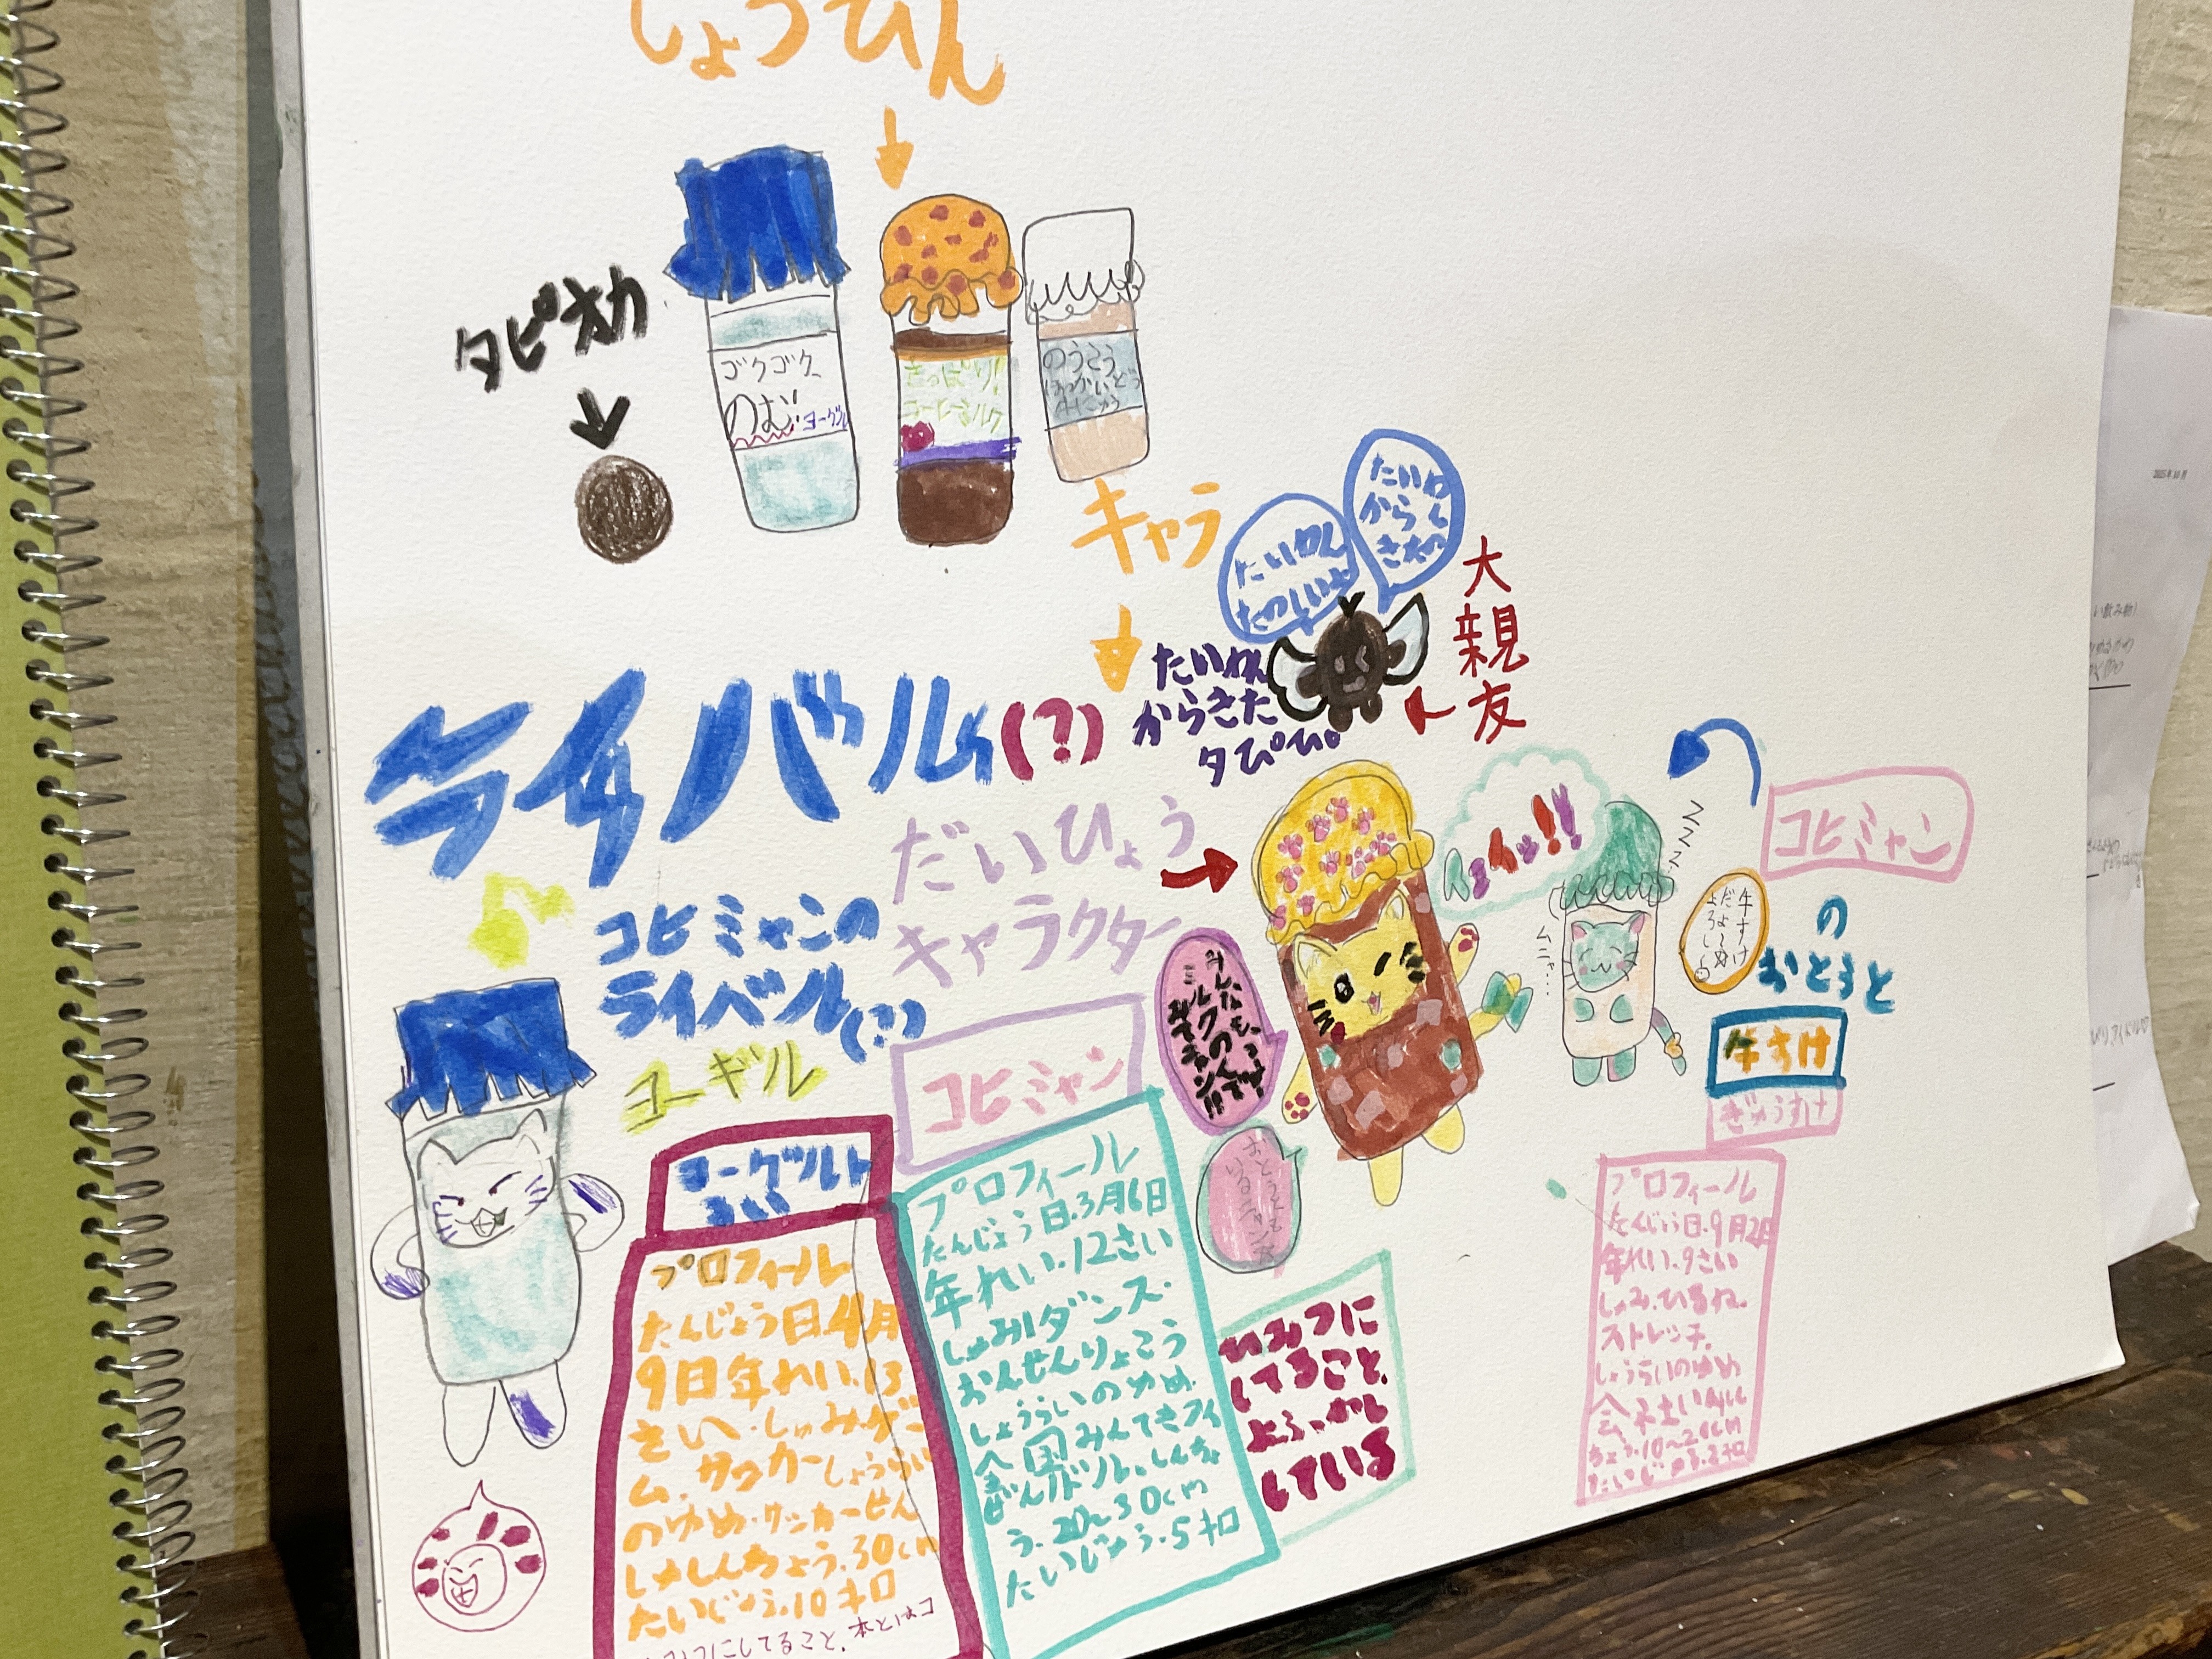 しょうひん
タピオカ
ゴクゴク
のむ ヨーグル
さっぱり!
コーヒーミルク
のうこう
ほっかいどう
キャラ
たいわん
たのしいよ
たいわ
からく
きたわ
大親友
たいわん
からきた
タピぴ。
ライバル(?)
コヒミャンの
ライバル(?)
コーギル
だいひょう
キャラクター
コヒミャン
ヨーグルト
プロフィール
たんじょう日.4月
9日年れい.13
さい.しゅみ.ゲー
ム.サッカーしょうらい
のゆめ.サッカーせん
しゅしんちょう.30cm
たいじゅう.10キロ
にしてること.本とはコ
プロフィール
たんじょう日.3月6日
年れい.12さい
しゅみ.ダンス.
おんせんりょこう
しょうらいのゆめ.
全国みんてきフィ
しんちょ
う.20~30cm
たいじゅう.5キロ
ひみつに
してること.
よふ、かし
している
zzzz
ムニャ...
牛すけ
だよ〜ぬ
よろしく
コヒミャン
の
おとうと
牛すけ
ぎゅうすけ
プロフィール
たんじょう日.9月2日
年れい.9さい
しゅみ.ひるね.
ストレッチ.
しょうらいのゆめ
会社い
ちょう.10~20cm
たいじゅう.3キロ
2025年10月
い飲み物)